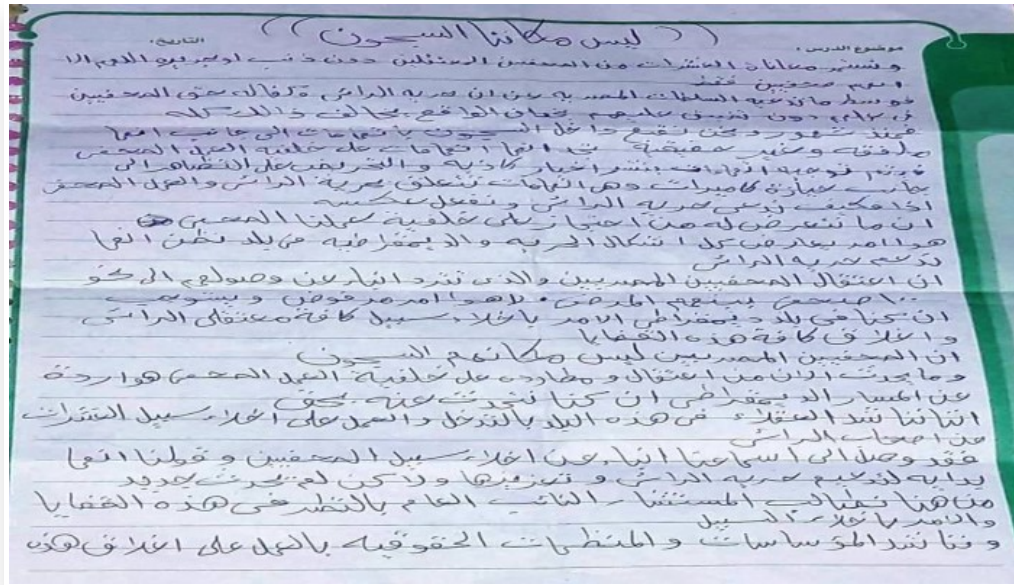 (( ليس مكاننا السجون ))
موضوع الدرس : التاريخ:
وتستمر معاناة العشرات من الصحفيين المعتقلين دون ذنب او جريره اللهم الا
انهم صحفيين فقط
فوسط ما تدعيه السلطات المصريه عن ان حريه الرائ مكفاله حتى الصحفيين
في عملهم دون تضييق عليهم فان الواقع يخالف ذالك كله
فمنذ شهور ونحن نقبع داخل السجون باتهامات الى جانب انها
ملفقه وغير حقيقية انها اتهامات على خلفية العمل الصحفى
فيتم توجيه اتهامات بنشر اخبار كاذبه والتحريض على التظاهر الى
جانب حيازة كاميرات وهى اتهامات تتعلق بحرية الرائ والعمل الصحفى
اذا فكيف ندعى حرية الرائ ونفعل عكسه
ان ما نتعرض له من احتجاز على خلفية عملنا الصحفى
هو امر يعارض كل اشكال الحريه والديمقراطيه فى بلد نظن انها
تدعم حريه الرائ
ان اعتقال الصحفيين المصريين والذى تترد انباء عن وصولهم الى نحو
١٠٠ صحفى بينهم المرضى . لاهوا امر مرفوض ويستوجب
ان كنا فى بلد ديمقراطى الامر باخلاء سبيل كافة معتقلى الرائ
واغلاق كافة هذه القضايا
ان الصحفيين المصريين ليس مكانهم السجون
وما يحدث الان من اعتقال ومطارده على خلفية العمل الصحفى هوا ردة
عن المسار الديمقراطى ان كنا نتحدث عنه بحق
اننا نناشد العقلاء فى هذه البلد بالتدخل والعمل على اخلاء سبيل العشرات
من اصحاب الرائ
فقد وصل الى اسماعنا انباء عن اخلاء سبيل الصحفيين وقولنا انها
بدايه لتدعيم حريه الرائ وتعزيزها ولاكن لم يحدث جديد
من هنا نطالب المستشار النائب العام بالنظر فى هذه القضايا
والامر باخلاء السبيل
ونناشد المؤساسات والمنظمات الحقوقيه بالعمل على اغلاق هذه